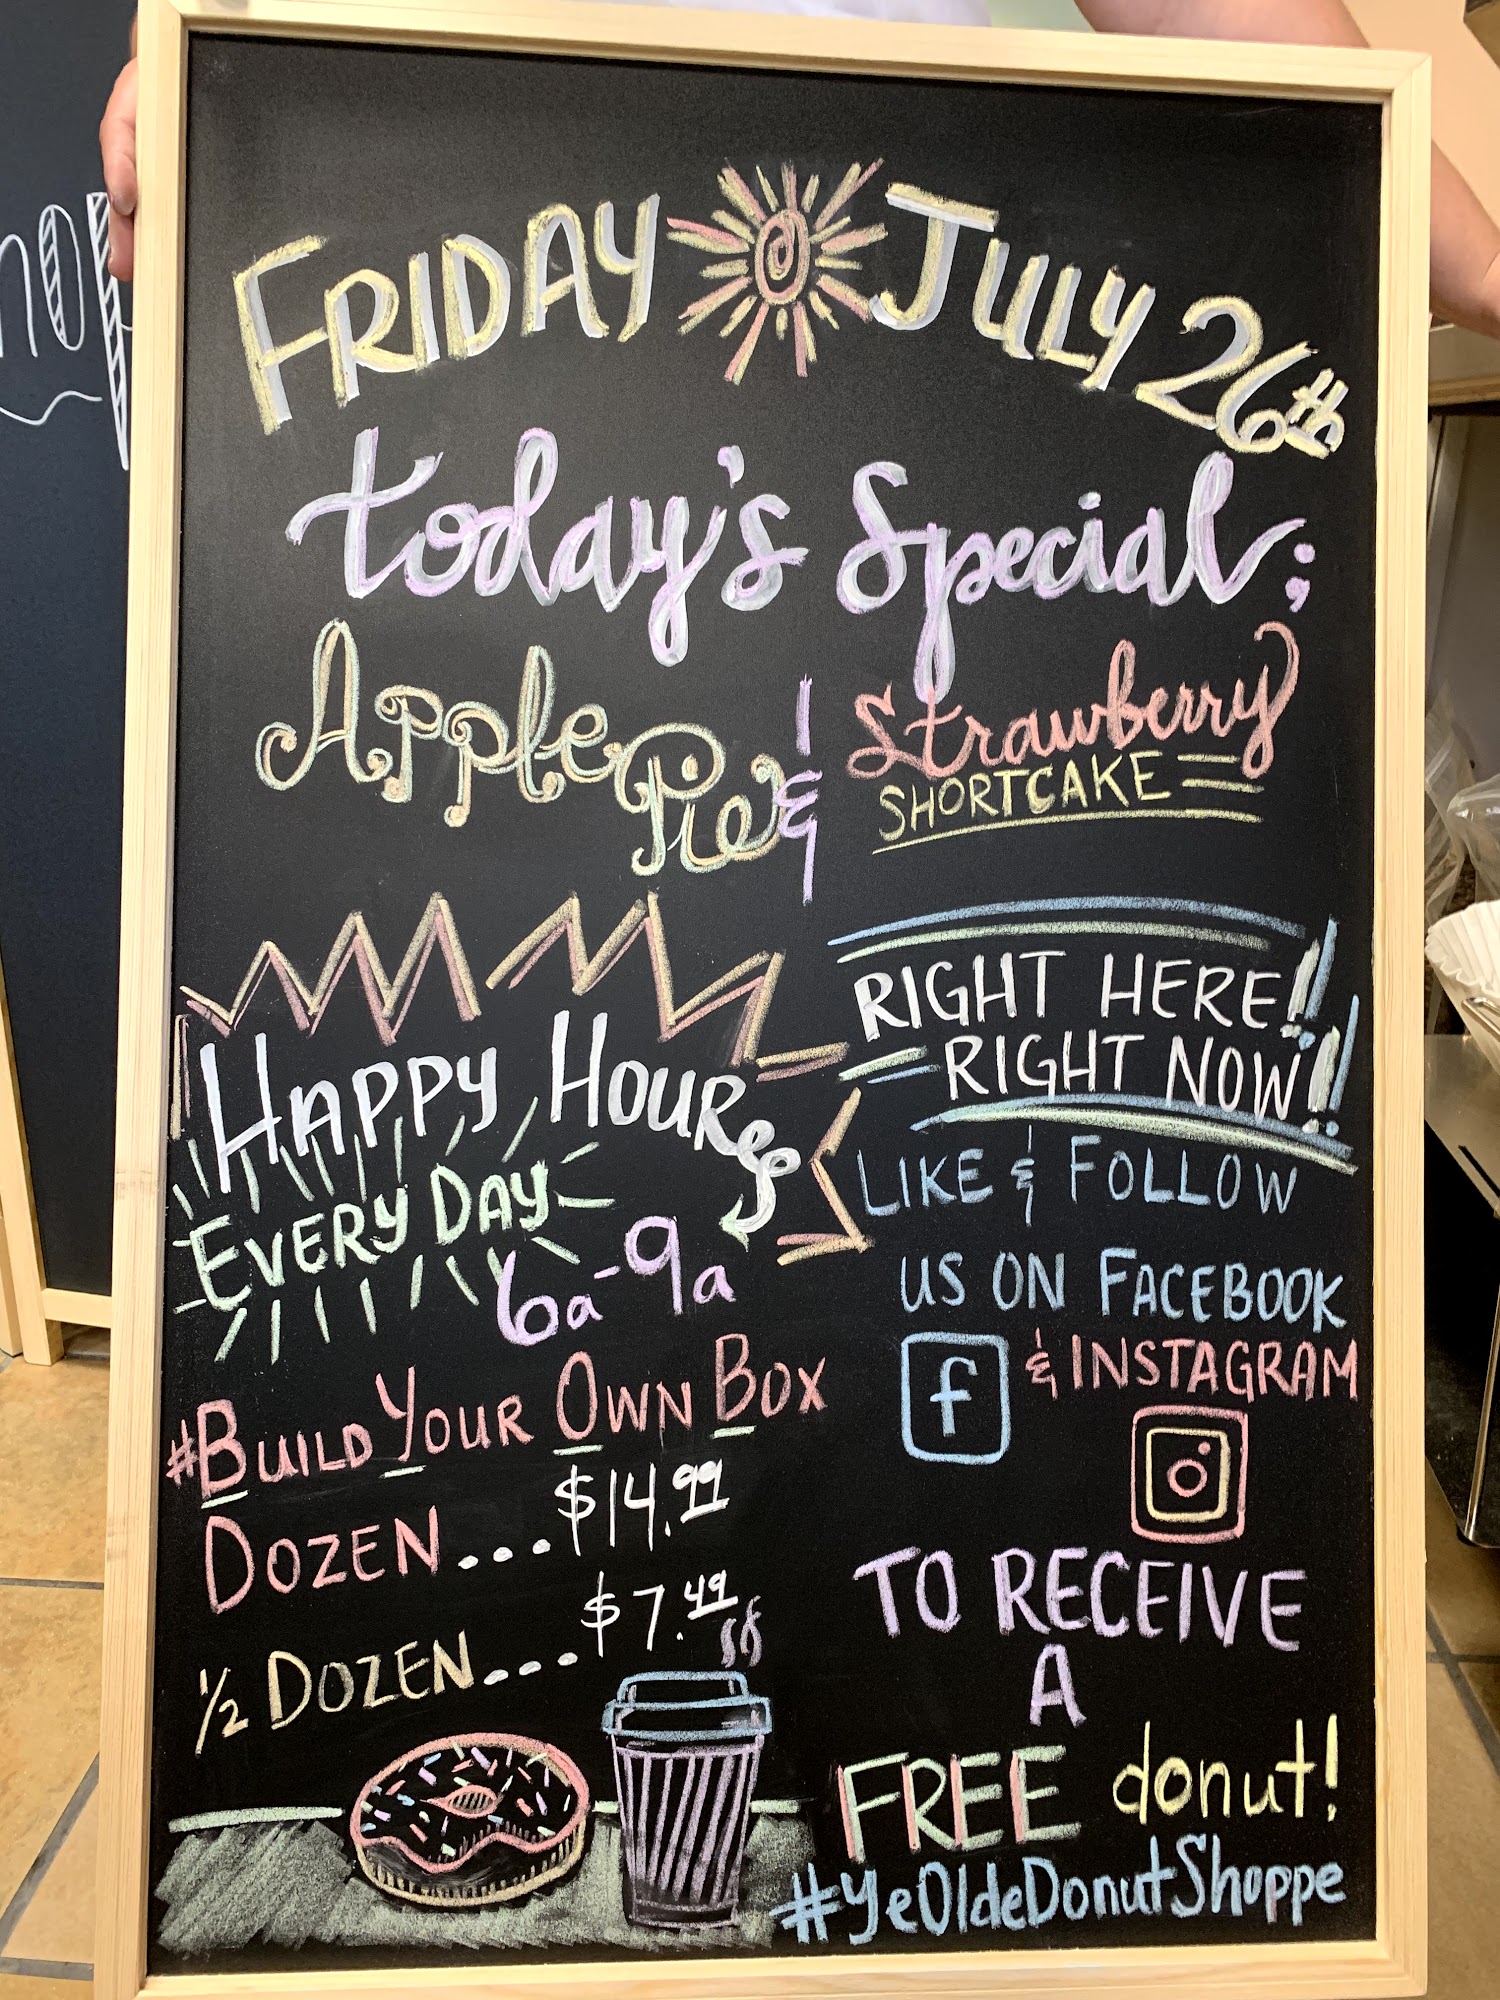 FRIDAY JULY 26th
Today's Special;
Apple Pie & Strawberry
SHORTCAKE
HAPPY HOURS
EVERY DAY
6a-9a
#BUILD YOUR OWN BOX
DOZEN...$14.99
1/2 DOZEN....$7.49
RIGHT HERE!!
RIGHT NOW!!
LIKE & FOLLOW
US ON FACEBOOK
f & INSTAGRAM
TO RECEIVE
A
FREE donut!
#YeOldeDonutShoppe